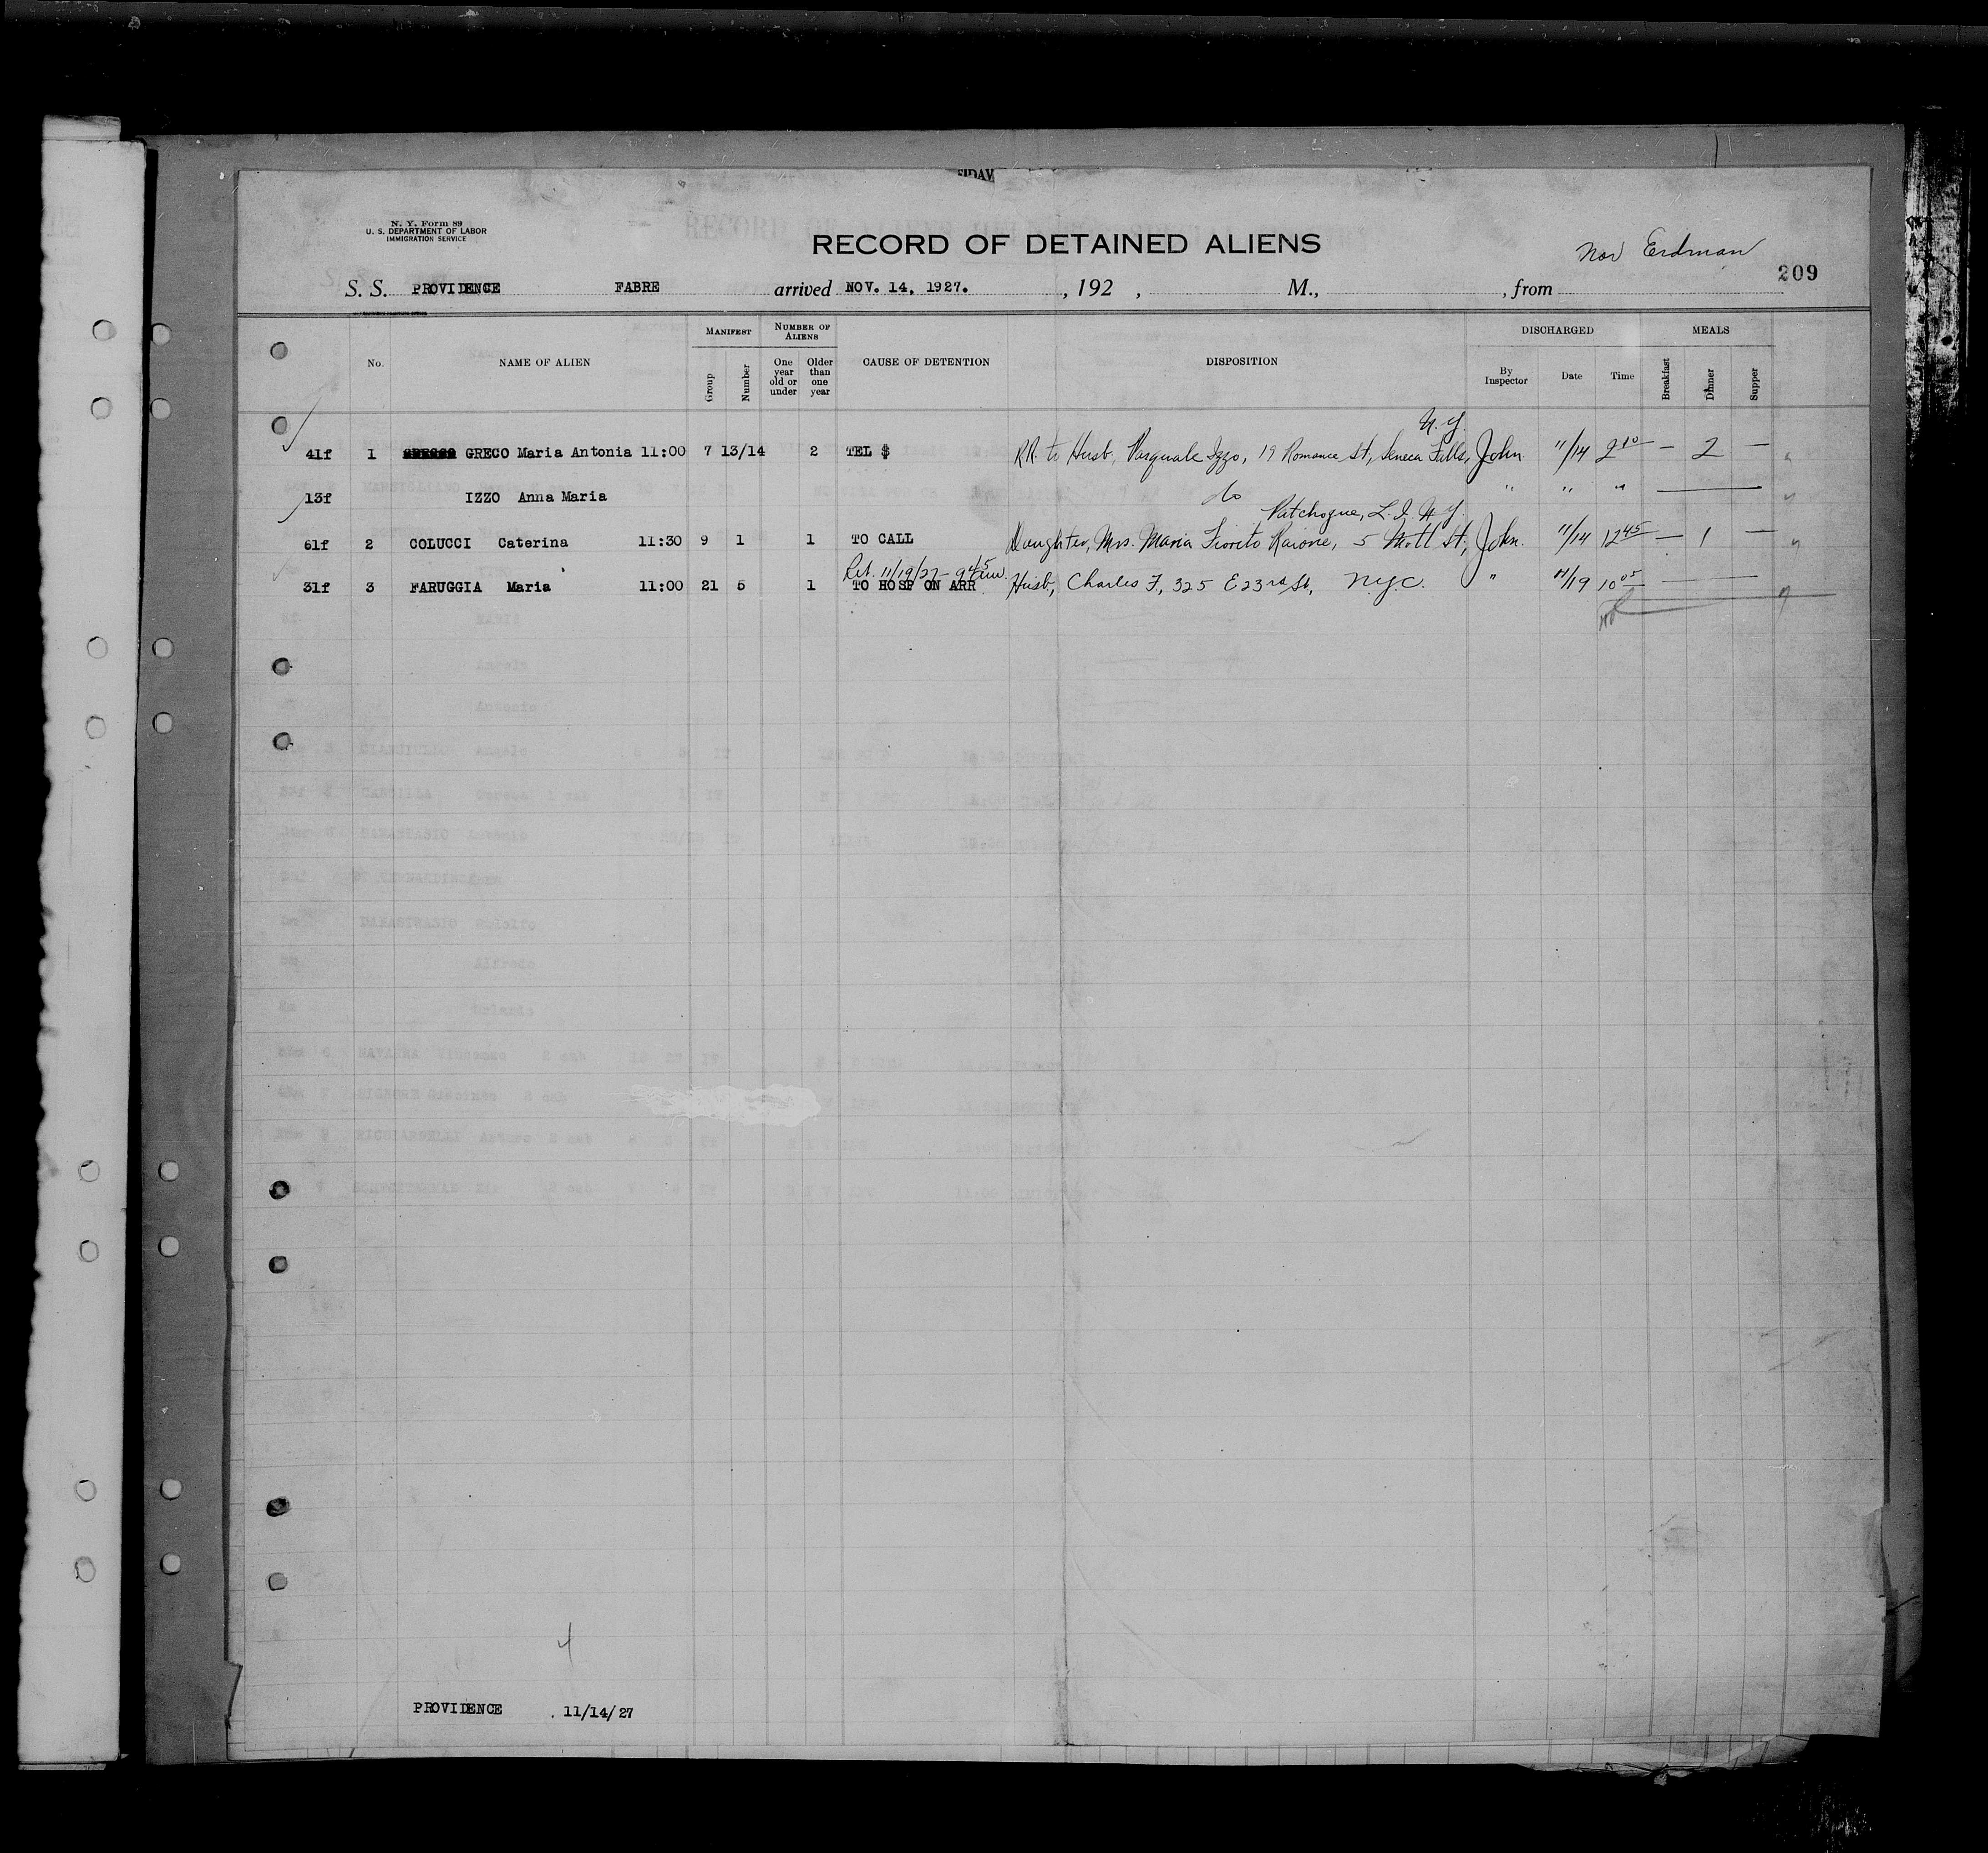 N. Y. Form 89
U. S. DEPARTMENT OF LABOR
IMMIGRATION SERVICE
RECORD OF DETAINED ALIENS
Erdman
209
S. S. PROVIDENCE FABRE arrived NOV. 14, 1927. , 192 , M., , from
No. NAME OF ALIEN MANIFEST Group Number NUMBER OF ALIENS One year old or under Older than one year CAUSE OF DETENTION DISPOSITION DISCHARGED By Inspector Date Time MEALS Breakfast Dinner Supper
N.Y.
41f 1 GRECO Maria Antonia 11:00 7 13/14 2 TEL $ RR. to Husb, Pasquale Izzo, 19 Romance St, Seneca Falls, John. 11/14 2 10 — 2 —
13f IZZO Anna Maria do " " "
Patchogue, L.I. N.Y.
61f 2 COLUCCI Caterina 11:30 9 1 1 TO CALL Daughter, Mrs. Maria Fiorito Raione, 5 Mott St, John. 11/14 12 45 — 1 —
Ret. 11/19/27 - 9 45 am.
31f 3 FARUGGIA Maria 11:00 21 5 1 TO HOSP ON ARR Husb, Charles F., 325 E 23rd St, N.Y.C. " 11/19 10 05 —
4
PROVIDENCE . 11/14/27